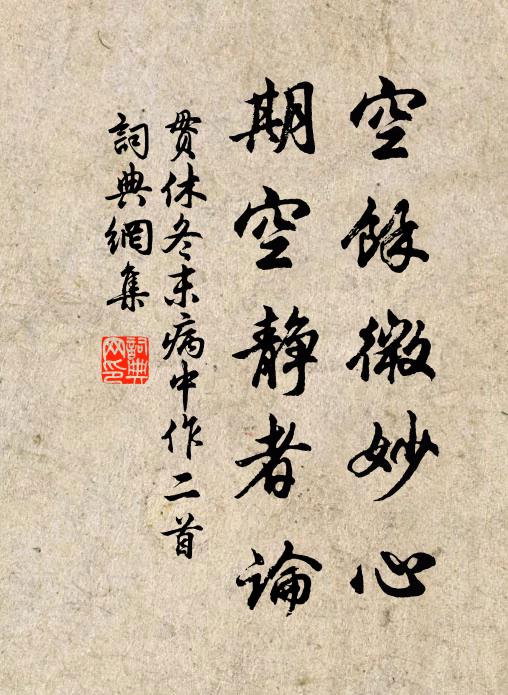 空餘微妙心
期空靜者論
貫休冬末病中作二首
詞典網集
詞典網印